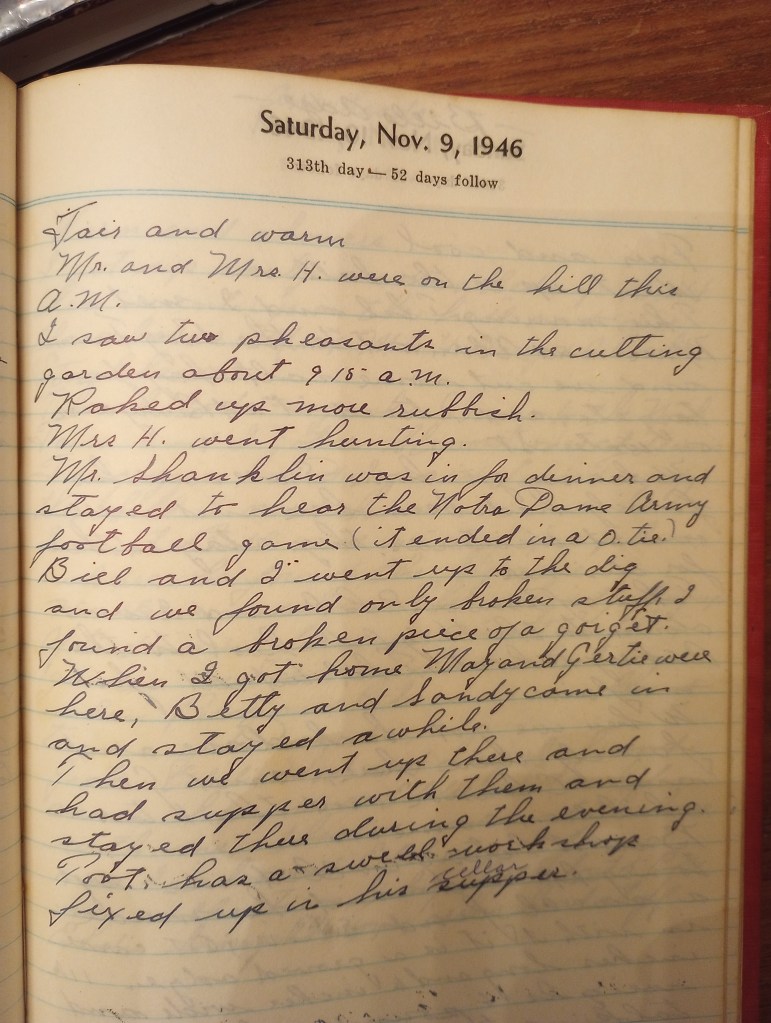 Saturday, Nov. 9, 1946
313th day — 52 days follow
Fair and warm
Mr. and Mrs. H. were on the hill this
A.M.
I saw two pheasants in the cutting
garden about 9 15 a.m.
Raked up more rubbish.
Mrs H. went hunting.
Mr. Shanklin was in for dinner and
stayed to hear the Notra Dame Army
football game (it ended in a O. tie.)
Bill and I went up to the dig
and we found only broken stuff. I
found a broken piece of a gorget.
When I got home May and Gertie were
here, Betty and Sandy came in
and stayed awhile.
Then we went up there and
had supper with them and
stayed there during the evening.
Toot has a swell workshop
cellar
fixed up in his supper.